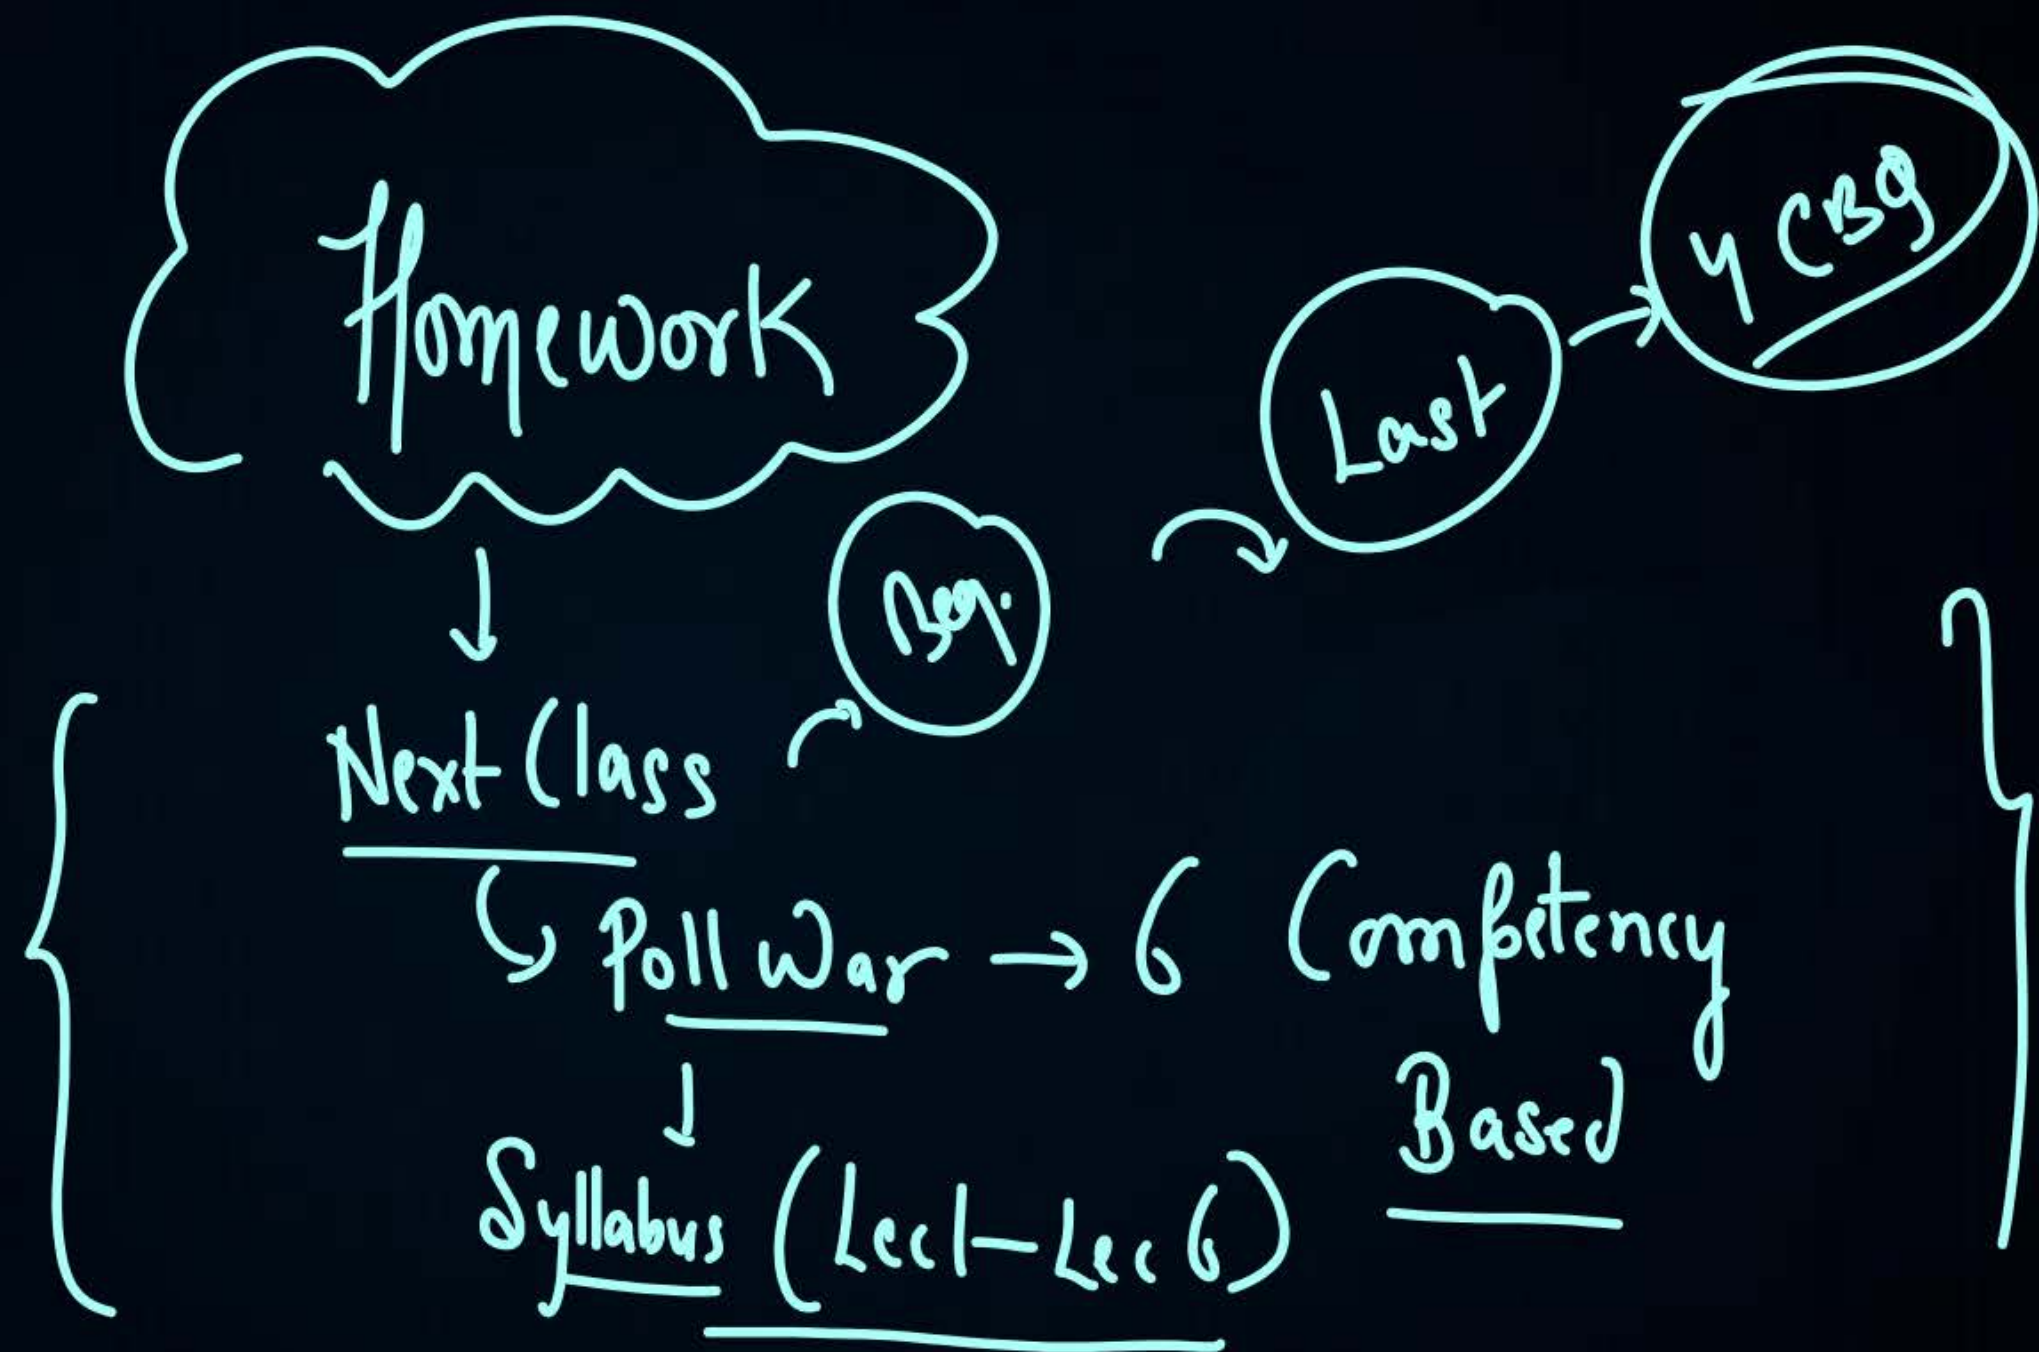 Homework
4 CBQ
Last
Beg.
Next Class
Poll War → 6 Competency
Based
Syllabus (Lec1-Lec 6)